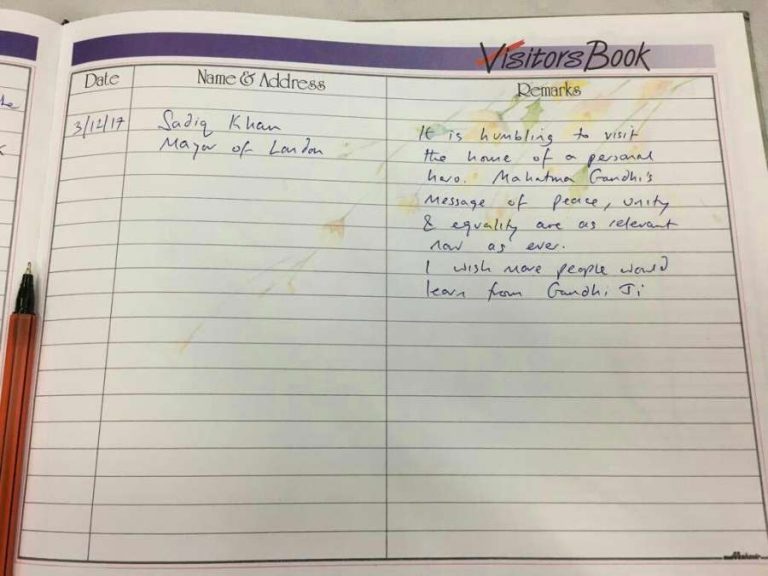 Visitors Book
Date
Name & Address
Remarks
3/12/17
Sadiq Khan
Mayor of London
It is humbling to visit
the home of a personal
hero. Mahatma Gandhi's
Message of peace, unity
& equality are as relevant
now as ever.
I wish more people would
learn from Gandhi Ji